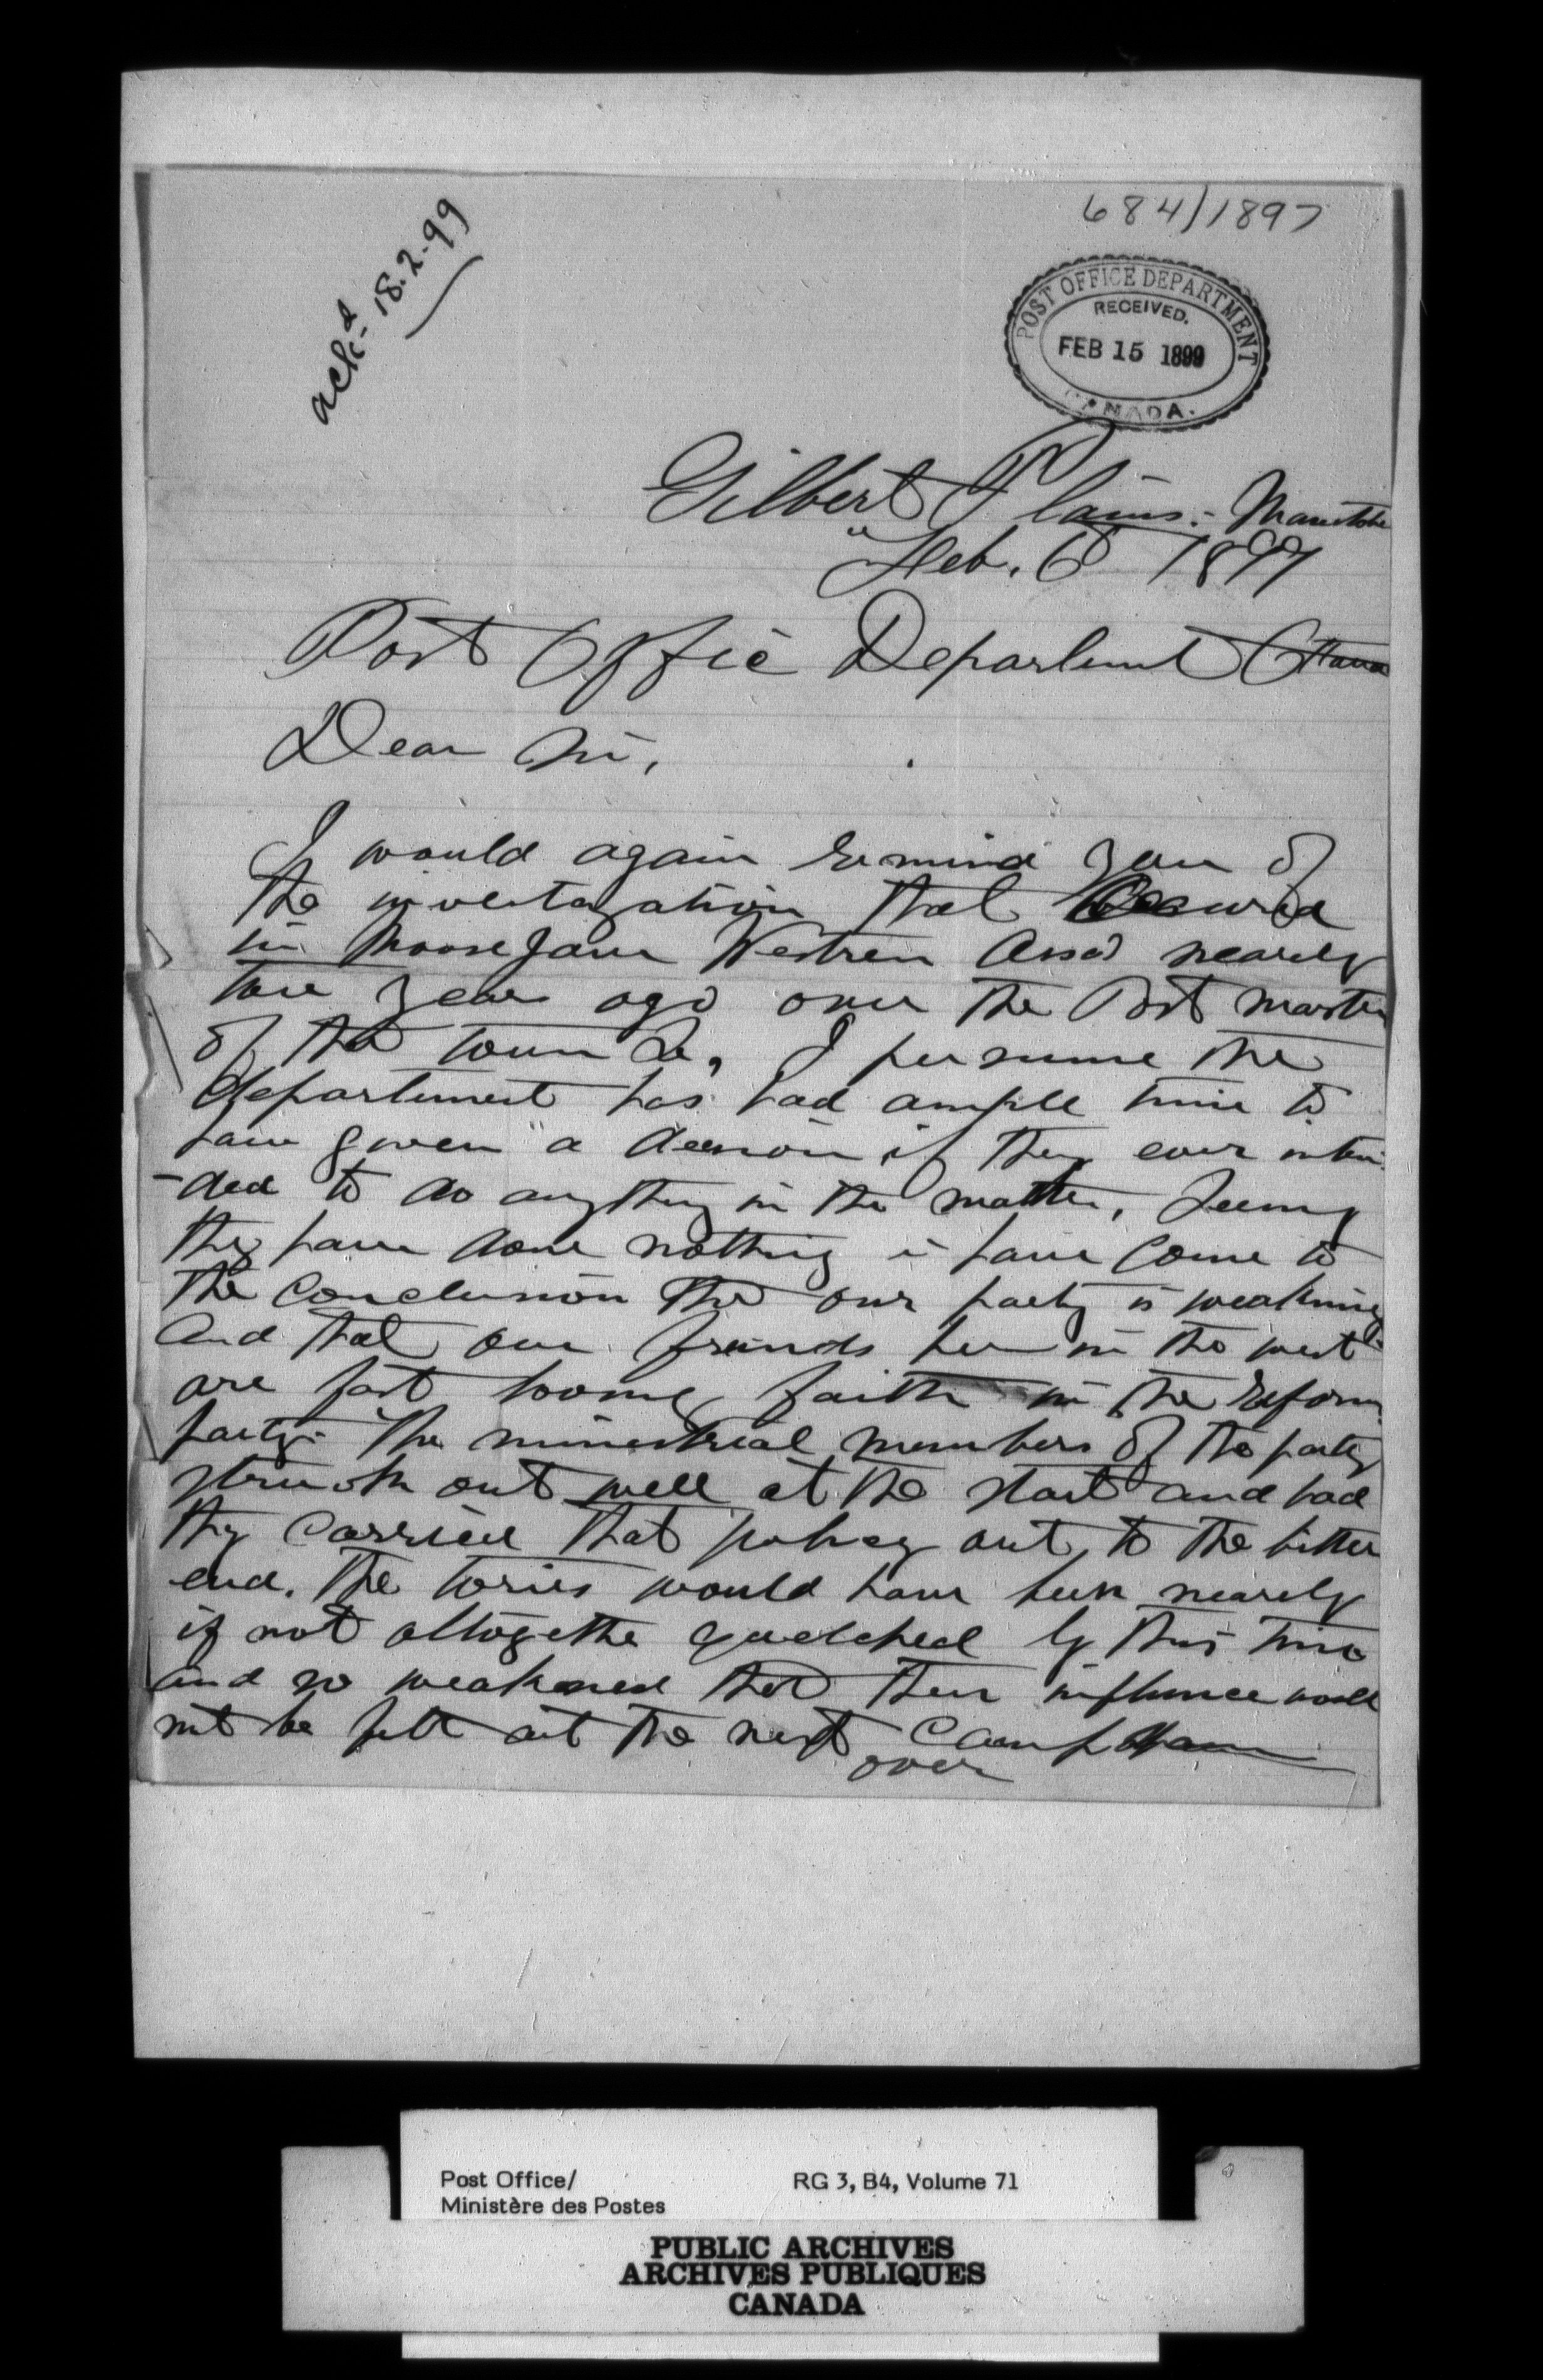 684/1897
ackd 18.2.99
POST OFFICE DEPARTMENT
RECEIVED.
FEB 15 1899
CANADA.
Gilbert Plains. Manitoba
Feb. 6 1899
Post Offic Department Ottawa
Dear Sir,
I would again remind you of
the investagation that occured
in Moose Jaw Westren Assa nearly
two years ago over the Post master
of that town &c, I persume the
department has had ample time to
have given a decision if they ever inten
-ded to do anything in the matter, Seeing
they have done nothing i have come to
the conclusion that our party is weakning
and that our friends here in the west
are fast loosing faith in the reform
party. The ministreal members of the party
struck out well at the start and had
they carried that policy out to the bitter
end. The tories would have been nearly
if not altogethe quelched by this time
and so weakened that their influence would
not be felt at the next
over
Post Office/
Ministère des Postes
RG 3, B4, Volume 71
PUBLIC ARCHIVES
ARCHIVES PUBLIQUES
CANADA